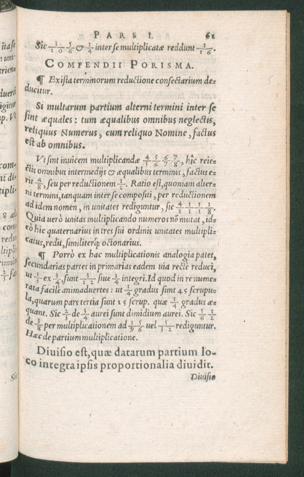 PARS I. 61
Sic 1/10 1/6 & 1/3 inter se multiplicatæ reddunt
COMPENDII PORISMA.
¶ Ex ista terminorum reductione consectarium de-
ducitur.
Si multarum partium alterni termini inter se
sint æquales: tum æqualibus omnibus neglectis,
reliquus Numerus, cum reliquo Nomine, factus
est ab omnibus.
Vt sint inuicem multiplicandæ 4/5 5/6 6/7 7/8, hic reie-
ctis omnibus intermedijs æqualibus terminis, factus e-
rit 4/8, seu per reductionem 1/2. Ratio est, quoniam alter-
ni termini, tanquam inter se compositi, per reductionem
ad idem nomen, in unitates rediguntur, sic
Quia verò unitas multiplicando numeros nõ mutat, ideò
hic quaternarius in tres sui ordinis unitates multipli-
catus, redit, similiterq; octonarius.
¶ Porrò ex hac multiplicationis analogia patet,
secundarias partes in primarias eadem uia rectè reduci,
ut 1/3 ex 3/4, sunt siue 1/4 integri. Id quod in re nume-
rata facilè animaduertes: ut 3/4 gradus sunt 45 scrupu-
la, quarum pars tertia sunt 15 scrup. quæ 1/4 gradus æ-
quant. Sic de 3/4 aurei sunt dimidium aurei. Sic
de per multiplicationem ad uel rediguntur.
Hæc de partium multiplicatione.
Diuisio est, quæ datarum partium lo-
co integra ipsis proportionalia diuidit.
Diuisio